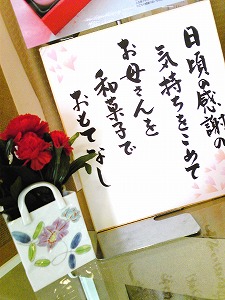 日頃の感謝の
気持ちをこめて
お母さんを
和菓子で
おもてなし